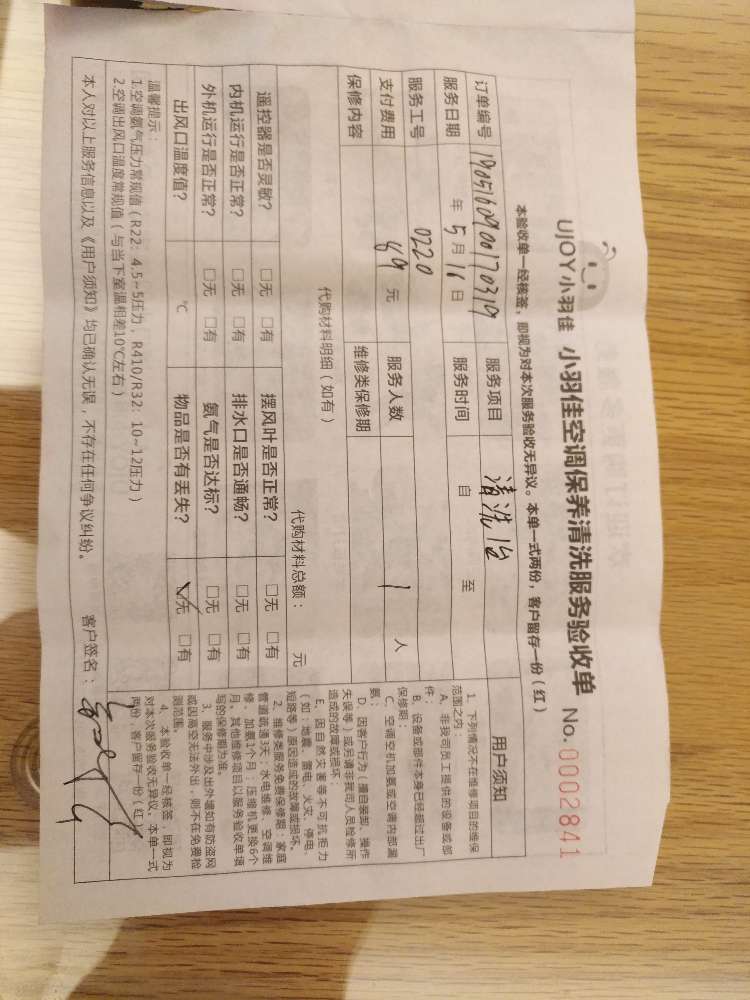 UJOY小羽佳 小羽佳空调保养清洗服务验收单 No.0002841
本验收单一经核签，即视为对本次服务验收无异议。本单一式两份，客户留存一份（红）
订单编号 服务项目 清洗1台
服务日期 年 5 月 16 日 服务时间 自 至
服务工号 0220
支付费用 89 元 服务人数 1 人
保修内容 维修类保修期
代购材料明细（如有） 代购材料总额： 元
遥控器是否灵敏？ □无 □有 摆风叶是否正常？ □无 □有
内机运行是否正常？ □无 □有 排水口是否通畅？ □无 □有
外机运行是否正常？ □无 □有 氨气是否达标？ □无 □有
出风口温度值？ ℃ 物品是否有丢失？ ☑无 □有
温馨提示：
1.空调氨气压力常规值（R22：4.5~5压力，R410/R32：10~12压力）
2.空调出风口温度常规值（与当下室温相差10℃左右）
本人对以上服务信息以及《用户须知》均已确认无误，不存在任何争议纠纷。 客户签名：
用户须知
1、下列情况不在维修项目的维保
范围之内：
A、非我司员工提供的设备或部
件；
B、设备或部件本身已经超过出厂
保修期；
C、空调空机加氨或空调内部漏
氨；
D、因客户行为（擅自装卸、操作
失误等）或另请非我司人员检修所
造成的故障或损坏
E、因自然灾害等不可抗拒力
（如：地震、雷电、火灾、停电、
短路等）原因造成的故障或损坏。
2、维修类服务免费保修期：家庭
管道疏通3天；水电维修、空调维
修、加氨1个月；压缩机更换6个
月。其他维修项目以服务验收单填
写的保修期为准。
3、服务中涉及出外墙如有防盗网
或因高空无法外出，则不在免费检
测范围。
4、本验收单一经核签，即视为
对本次服务验收无异议。本单一式
两份，客户留存一份（红）